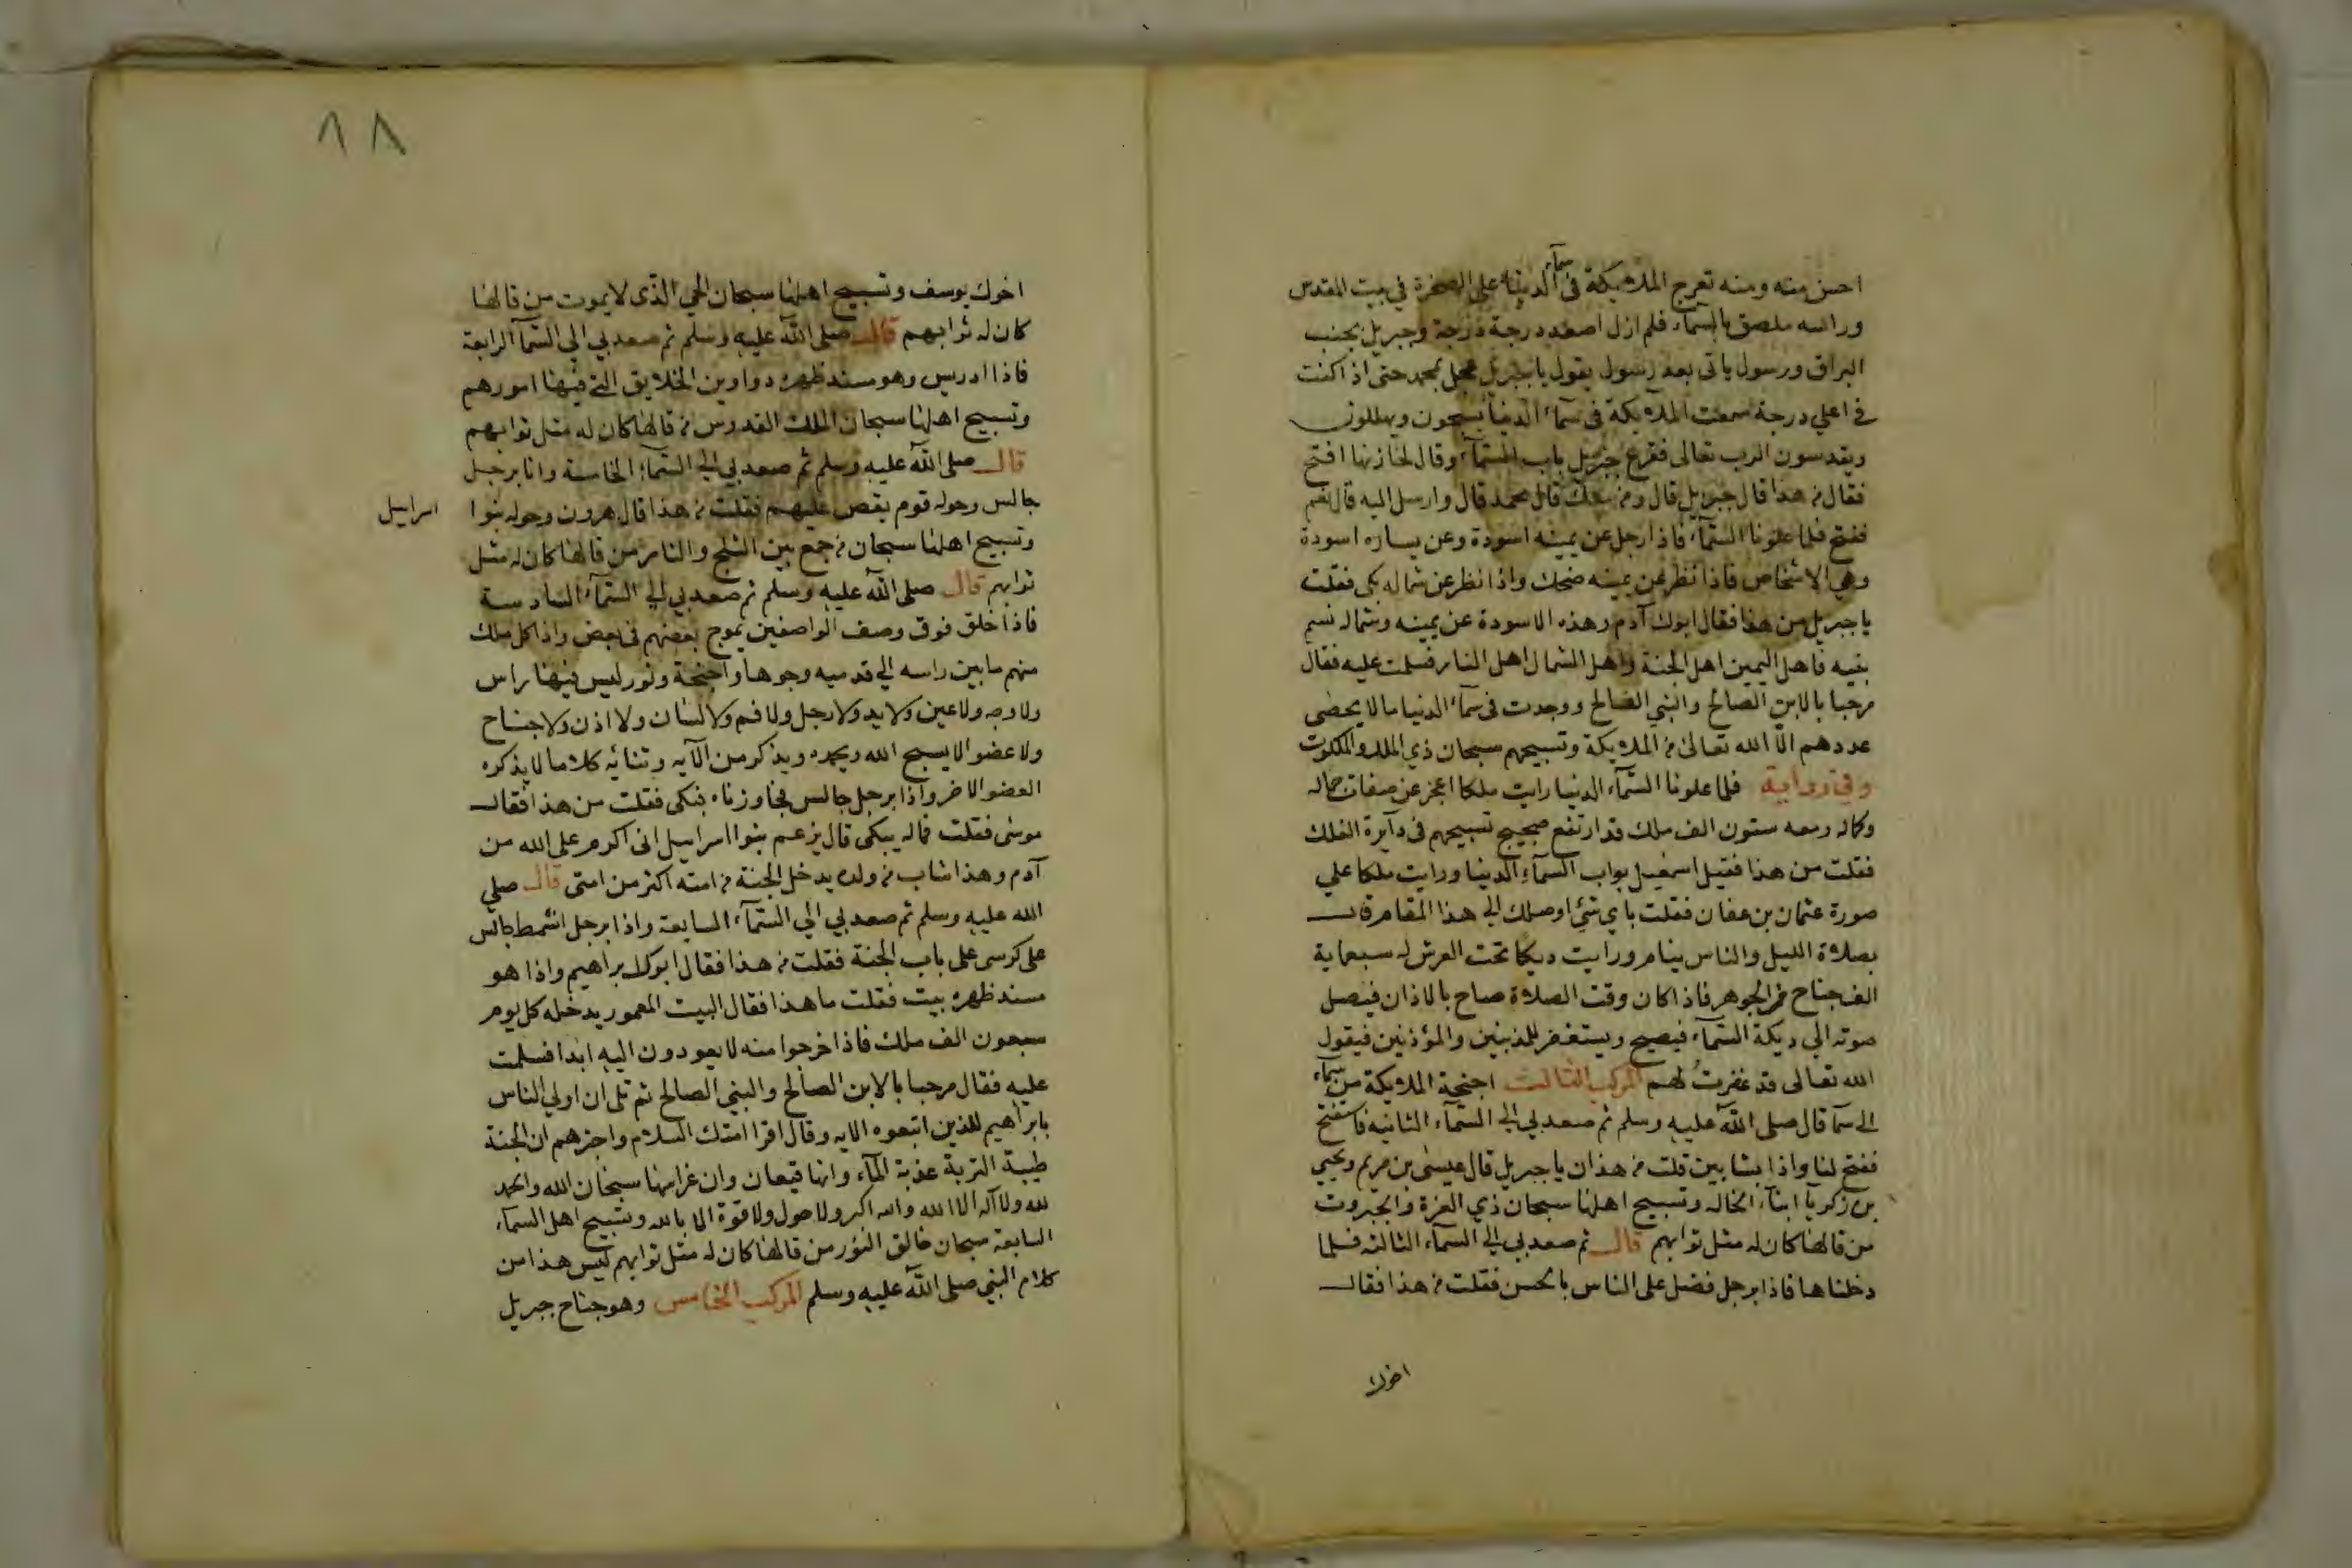 احسن منه ومنه تعرج الملايكة فى سمآء الدنيا على الصخرة في بيت المقدس
وراسه ملصق بالسمآء فلم ازل اصعد درجة درجة وجبريل بجنب
البراق ورسول ياتى بعد رسول يقول يا جبريل عجل بمحمد حتى اذا كنت
في اعلي درجة سمعت الملآيكة فى سمآء الدنيا يسبحون ويهللون
ويقدسون الرب تعالى فقرع جبريل باب السمآء وقال لخازنها افتح
فقال من هذا قال جبريل قال ومن معك قال محمد قال وارسل اليه قال نعم
ففتح فلما علونا السمآء فاذا رجل عن يمينه اسودة وعن يساره اسودة
وهي الاشخاص فاذا نظر عن يمينه ضحك واذا نظر عن شماله بكى فقلت
يا جبريل من هذا فقال ابوك آدم وهذه الاسودة عن يمينه وشماله نسم
بنيه فاهل اليمين اهل الجنة واهل الشمال اهل النار فسلمت عليه فقال
مرحبا بالابن الصالح والنبي الصالح ووجدت فى سمآء الدنيا ما لا يحصى
عددهم الّا الله تعالى من الملايكة وتسبيحهم سبحان ذي الملك والملكوت
وفي رواية فلما علونا السمآء الدنيا رايت ملكا اعجز عن صفات جماله
وكماله ومعه ستون الف ملك قد ارتفع ضجيج تسبيحهم فى دآيرة الفلك
فقلت من هذا فقيل اسمعيل بواب السمآء الدنيا ورايت ملكا علي
صورة عثمان بن عفان فقلت باي شئ اوصلك الي هذا المقام قال
بصلاة الليل والناس ينام ورايت ديكا تحت العرش له سبعماية
الف جناح من الجوهر فاذا كان وقت الصلاة صاح بالاذان فيصل
صوته الي ديكة السمآء فيصيح ويستغفر للمذنبين والمؤذنين فيقول
الله تعالى قد غفرت لهم المركب الثالث اجنحة الملايكة من سمآء
الى سما قال صلى الله عليه وسلم ثم صعد بي الي السمآء الثانيه فاستفتح
ففتح لنا واذا بشابين قلت من هذان يا جبريل قال عيسى بن مريم ويحيي
بن زكريآ ابنآء الخاله وتسبيح اهلها سبحان ذي العزة والجبروت
من قالها كان له مثل ثوابهم قال ثم صعد بي الي السمآء الثالثه فلما
دخلناها فاذا برجل فضل على الناس بالحسن فقلت من هذا فقال
اخوك
١٨
اخوك يوسف وتسبيح اهلها سبحان الحي الذى لا يموت من قالها
كان له ثوابهم قال صلى الله عليه وسلم ثم صعد بي الي السمآ الرابعة
فاذا ادريس وهو مسند ظهره دواوين الخلايق التي فيها امورهم
وتسبيح اهلها سبحان الملك القدوس من قالها كان له مثل ثوابهم
قال صلى الله عليه وسلم ثم صعد بي الي السمآء الخامسة وانا برجل
جالس وحوله قوم يقص عليهم فقلت من هذا قال هرون وحوله بنوا اسرايل
وتسبيح اهلها سبحان من جمع بين الثلج والنار من قالها كان له مثل
ثوابهم قال صلى الله عليه وسلم ثم صعد بي الي السمآء السادسة
فاذا خلق فوق وصف الواصفين يموج بعضهم فى بعض واذا كل ملك
منهم ما بين راسه الي قدميه وجوها واجنحة ونور ليس فيها راس
ولا وجه ولا عين ولا يد ولا رجل ولا فم ولا لسان ولا اذن ولا جناح
ولا عضو الا يسبح الله ويحمده ويذكر من الآيه وثنائه كلاما لا يذكره
العضو الاخر واذا برجل جالس فجاوزناه فبكى فقلت من هذا فقال
موسى فقلت فماله يبكى قال يزعم بنوا اسرايل انى اكرم على الله من
آدم وهذا شاب من ولده يدخل الجنة من امته اكثر من امتى قال صلي
الله عليه وسلم ثم صعد بي الي السمآء السابعة واذا برجل اشمط جالس
على كرسى على باب الجنة فقلت من هذا فقال ابوك ابراهيم واذا هو
مسند ظهره بيت فقلت ما هذا فقال البيت المعمور يدخله كل يوم
سبعون الف ملك فاذا خرجوا منه لا يعودون اليه ابدا فسلمت
عليه فقال مرحبا بالابن الصالح والنبي الصالح ثم تلى ان اولي الناس
بابراهيم للذين اتبعوه الايه وقال اقرا امتك السلام واخبرهم ان الجنة
طيبة التربة عذبة المآء وانها قيعان وان غراسها سبحان الله والحمد
لله ولا اله الا الله والله اكبر ولا حول ولا قوة الا بالله وتسبيح اهل السمآء
السابعة سبحان خالق النور من قالها كان له مثل ثوابهم ليس هذا من
كلام النبي صلى الله عليه وسلم المركب الخامس وهو جناح جبريل